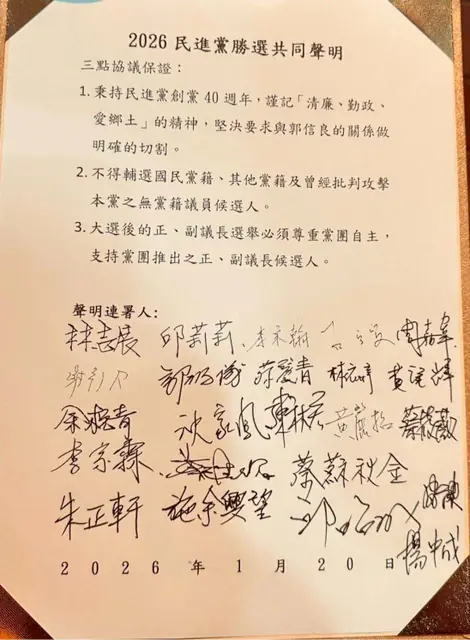 2026 民進黨勝選共同聲明
三點協議保證：
1. 秉持民進黨創黨 40 週年，謹記「清廉、勤政、
愛鄉土」的精神，堅決要求與郭信良的關係做
明確的切割。
2. 不得輔選國民黨籍、其他黨籍及曾經批判攻擊
本黨之無黨籍議員候選人。
3. 大選後的正、副議長選舉必須尊重黨團自主，
支持黨團推出之正、副議長候選人。
聲明連署人：
林志展 邱莉莉 李禾翰 周嘉韋
郭鴻儀
余柷青 沈家鳳 陳秋宏 黃麗招
李宗霖 蔡蘇秋金
朱正軒 施余興望
楊中成
2026年1月20日